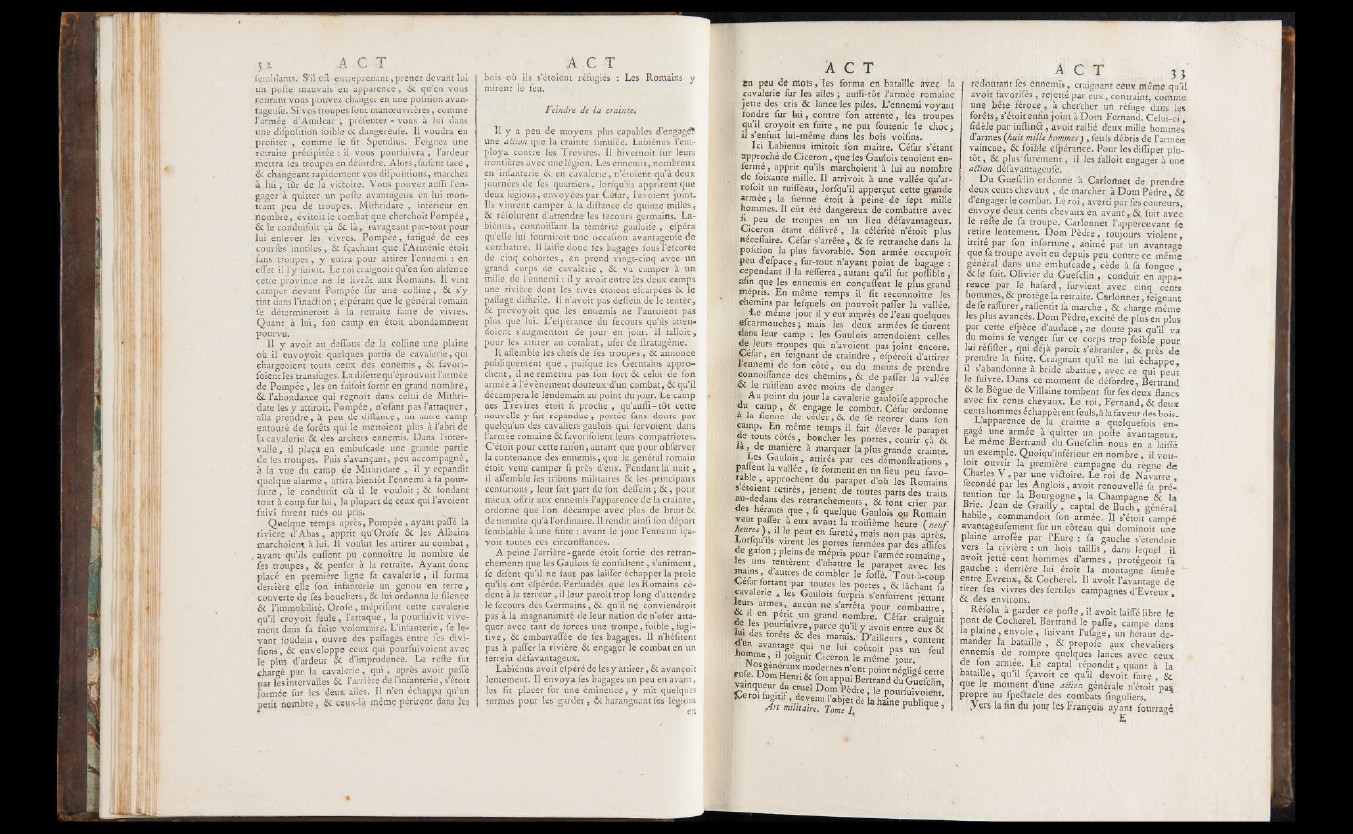 32 A C T
semblants. S'il est entreprenant, prenez devant lui
un poste mauvais en apparence, & qu'en vous
retirant vous pouvez changer en une position avan-
tageuse. Si vos troupes sont manœuvrières, comme
l'armée d'Amilcar ; présentez-vous à lui dans
une disposition foible & dangereuse. Il voudra en
profiter, comme le fit Spendius. Feignez une
retraite précipitée : il vous poursuivra, l'ardeur
mettra les troupes en désordre. Alors, faisant face,
& changeant rapidement vos dispositions, marchez
à lui, sûr de la victoire. Vous pouvez aussi l'en-
gager à quitter un poste avantageux en lui mon-
trant peu de troupes. Mithridate, inférieur en
nombre, évitoit le combat que cherchoit Pompée,
& le conduisoit çà & là, ravageant par-tout pour
lui enlever les vivres. Pompée, fatigué de ces
courses inutiles, & sçachant que l'Arménie étoit
sans troupes, y entra pour attirer l'ennemi : en
effet il l'y suivit. Le roi craignoit qu'en son absence
cette province ne se livrât aux Romains. Il vint
camper devant Pompée sur une colline, & s'y
tint dans l'inaction ; espérant que le général romain
se détermineroit à la retraite faute de vivres.
Quant à lui, son camp en étoit abondamment
pourvu.
Il y avoit au dessous de la colline une plaine
où il envoyoit quelques partis de cavalerie, qui
chargeoient tous ceux des ennemis, & favori-
soient les transfuges. La disette qu'éprouvoit l'armée
de Pompée, les en faisoit sortir en grand nombre,
& l'abondance qui regnoit dans celui de Mithri-
date les y attiroit. Pompée, n'osant pas l'attaquer,
alla prendre, à peu de distance, un autre camp
entouré de forêts qui le mettoient plus à l'abri de
la cavalerie & des archers ennemis. Dans l'inter-
valle, il plaça en embuscade une grande partie
de ses troupes. Puis s'avançant, peu accompagné,
à la vue du camp de Mithridate, il y répandit
quelque alarme, attira bientôt l'ennemi à sa pour-
suite, le conduisit où il le vouloit ; & fondant
tout à coup sur lui, la plupart de ceux qui l'avoient
suivi furent tués ou pris.
Quelque temps après, Pompée, ayant passé la
rivière d'Abas, apprit qu'Orose & les Albains
marchoient à lui. Il voulut les attirer au combat,
avant qu'ils eussent pu connoître le nombre de
ses troupes, & penser à la retraite. Ayant donc
placé en première ligne sa cavalerie, il forma
derrière elle son infanterie un genou en terre,
couverte de ses boucliers, & lui ordonna le silence
& l'immobilité. Orose, méprisant cette cavalerie
qu'il croyoit seule, l'attaque, la poursuivit vive-
ment dans sa fuite volontaire. L'infanterie, se le-
vant soudain, ouvre des passages entre ses divi-
sions, & enveloppe ceux qui poursuivoient avec
le plus d'ardeur & d'imprudence. Le reste fut
chargé par la cavalerie, qui, après avoir passé
par les intervalles & l'arrière de l'infanterie, s'étoit
formée sur les deux ailes. Il n'en échappa qu'un
petit nombre, & ceux-là même périrent dans les
A C T
bois où ils s'étoient réfugiés : Les Romains y
mirent le feu.
Feindre de la crainte.
Il y a peu de moyens plus capables d'engager
une action que la crainte simulée. Labiénus l'em-
ploya contre les Trevires. Il hivernoit sur leurs
frontières avec une légion. Les ennemis, nombreux
en infanterie & en cavalerie, n'étoient qu'à deux
journées de ses quartiers, lorsqu'ils apprirent que
deux légions, envoyées par César, l'avoient joint.
Ils vinrent camper à la distance de quinze milles,
& résolurent d'attendre les secours germains. La-
biénus, connoissant la témérité gauloise, espéra
qu'elle lui fourniroit une occasion avantageuse de
combattre. Il laisse donc ses bagages sous l'escorte
de cinq cohortes, en prend vingt-cinq avec un
grand corps de cavalerie, & va camper à un
mille de l'ennemi : il y avoit entre les deux camps
une rivière dont les rives étoient escarpées & le
passage difficile. Il n'avoit pas dessein de le tenter,
& prévoyoit que les ennemis ne l'auroient pas
plus que lui. L'espérance du secours qu'ils atten-
doient s'augmentoit de jour en jour. Il falloit,
pour les attirer au combat, user de stratagême.
Il assemble les chefs de ses troupes, & annonce
publiquement que, puisque les Germains appro-
chent, il ne remettra pas son sort & celui de son
armée à l'évènement douteux d'un combat, & qu'il
décampera le lendemain au point du jour. Le camp
des Trevires étoit si proche, qu'aussi-tôt cette
nouvelle y fut répandue, portée sans doute par
quelqu'un des cavaliers gaulois qui servoient dans
l'armée romaine & favorisoient leurs compatriotes.
C'étoit pour cette raison, autant que pour observer
la contenance des ennemis, que le général romain
étoit venu camper si près d'eux. Pendant la nuit,
il assemble les tribuns militaires & les principaux
centurions, leur fait part de son dessein ; &, pour
mieux offrir aux ennemis l'apparence de la crainte,
ordonne que l'on décampe avec plus de bruit &
de tumulte qu'à l'ordinaire. Il rendit ainsi son départ
semblable à une fuite : avant le jour l'ennemi sça-
voit toutes ces circonstances.
A peine l'arrière-garde étoit sortie des retran-
chements que les Gaulois se consultent, s'animent,
se disent qu'il ne faut pas laisser échapper la proie
qu'ils ont espérée. Persuadés que les Romains cè-
dent à la terreur, il leur paroît trop long d'attendre
le secours des Germains, & qu'il ne conviendroit
pas à la magnanimité de leur nation de n'oser atta-
quer avec tant de forces une troupe, foible, fugi-
tive, & embarrassée de ses bagages. Il n'hésitent
pas à passer la rivière & engager le combat en un
terrein désavantageux.
Labiénus avoit espéré de les y attirer, & avançoit
lentement. Il envoya ses bagages un peu en avant,
les fit placer sur une éminence, y mit quelques
turmes pour les garder, & haranguant ses légions
en
A C T
en peu de mots, les forma en bataille avec la
cavalerie sur les ailes ; aussi-tôt l'armée romaine
jette des cris & lance les piles. L'ennemi voyant
fondre sur lui, contre son attente, les troupes
qu'il croyoit en fuite, ne put soutenir le choc ;
il s'enfuit lui-même dans les bois voisins.
Ici Labienus imitoit son maître. César s'étant
approché de Ciceron, que les Gaulois tenoient en-
fermé, apprit qu'ils marchoient à lui au nombre
de soixante mille. Il arrivoit à une vallée qu'ar-
rosoit un ruisseau, lorsqu'il apperçut cette grande
armée ; la sienne étoit à peine de sept mille
hommes. Il eût été dangereux de combattre avec
si peu de troupes en un lieu désavantageux.
Ciceron étant délivré, la célérité n'étoit plus
nécessaire. César s'arrête, & se retranche dans la
position la plus favorable. Son armée occupoit
peu d'espace, sur-tout n'ayant point de bagage :
cependant il la resserra, autant qu'il fut possible,
afin que les ennemis en conçussent le plus grand
mépris. En même temps il fit reconnoître les
chemins par lesquels on pouvoit passer la vallée.
Le même jour il y eut auprès de l'eau quelques
escarmouches ; mais les deux armées se tinrent
dans leur camp : les Gaulois attendoient celles
de leurs troupes qui n'avoient pas joint encore.
César, en feignant de craindre, espéroit d'attirer
l'ennemi de son côté, ou du moins de prendre
connoissance des chemins, & de passer la vallée
& le ruisseau avec moins de danger
Au point du jour la cavalerie gauloise approche
du camp, & engage le combat. César ordonne
à la sienne de céder, & de se retirer dans son
camp. En même temps il fait élever le parapet
de touts côtés, boucher les portes, courir çà &
là, de manière à marquer la plus grande crainte.
Les Gaulois, attirés par ces démonstrations,
passent la vallée, se forment en un lieu peu favo-
rable, approchent du parapet d'où les Romains
s'étoient retirés, jettent de toutes parts des traits
au-dedans des retranchements, & font crier par
des hérauts que, si quelque Gaulois ou Romain
veut passer à eux avant la troisième heure (neuf
heures), il le peut en sureté, mais non pas après.
Lorsqu'ils virent les portes fermées par des assises
de gason ; pleins de mépris pour l'armée romaine,
les uns tentèrent d'abattre le parapet avec les
mains, d'autres de combler le fossé. Tout-à-coup
César sortant par toutes les portes, & lâchant sa
cavalerie, les Gaulois surpris s'enfuirent jettant
leurs armes, aucun ne s'arrêta pour combattre,
& il en périt un grand nombre. César craignit
de les poursuivre, parce qu'il y avoit entre eux &
lui des forêts & des marais. D'ailleurs, content
d'un avantage qui ne lui coûtoit pas un seul
homme, il joignit Ciceron le même jour.
Nos généraux modernes n'ont point négligé cette
ruse. Dom Henri & son appui Bertrand du Guesclin,
vainqueur du cruel Dom Pèdre, le poursuivoient.
Ce roi fugitif, devenu l'objet de la haine publique,
Art militaire. Tome I.
A C T 33
redoutant ses ennemis, craignant ceux même qu'il
avoit favorisés, rejetté par eux, contraint, comme
une bête féroce, à chercher un refuge dans les
forêts, s'étoit enfin joint à Dom Fernand. Celui-ci,
fidèle par instinct, avoit rallié deux mille hommes
d'armes (huit mille hommes), seuls débris de l'armée
vaincue, & foible espérance. Pour les dissiper plu-
tôt, & plus surement, il les falloit engager à une
action désavantageuse.
Du Guesclin ordonne à Carlonnet de prendre
deux cents chevaux, de marcher à Dom Pèdre, &
d'engager le combat. Le roi, averti par ses coureurs,
envoye deux cents chevaux en avant, & suit avec
le reste de sa troupe. Carlonnet l'appercevant se
retire lentement. Dom Pèdre, toujours violent,
irrité par son infortune, animé par un avantage
que sa troupe avoit eu depuis peu contre ce même
général dans une embuscade, cède à sa fougue,
& le suit. Olivier du Guesclin, conduit en appa-
rence par le hasard, survient avec cinq cents
hommes, & protège la retraite. Carlonnet, feignant
de se rassurer, rallentit sa marche, & charge même
les plus avancés. Dom Pèdre, excité de plus en plus
par cette espèce d'audace, ne doute pas qu'il va
du moins se venger sur ce corps trop foible pour
lui résister, qui déjà paroît s'ébranler, & près de
prendre la fuite. Craignant qu'il ne lui échappe,
il s'abandonne à bride abattue, avec ce qui peut
le suivre. Dans ce moment de désordre, Bertrand
& le Bègue de Villaine tombent sur ses deux flancs
avec six cents chevaux. Le roi, Fernand, & deux
cents hommes échappèrent seuls, à la faveur des bois.
L'apparence de la crainte a quelquefois en-
gagé une armée à quitter un poste avantageux.
Le même Bertrand du Guesclin nous en a laissé
un exemple. Quoiqu'inférieur en nombre, il vou-
loit ouvrir la première campagne du règne de
Charles V, par une victoire. Le roi de Navarre,
secondé par les Anglois, avoit renouvellé sa pré-
tention sur la Bourgogne, la Champagne & la
Brie. Jean de Grailly, captal de Buch, général
habile, commandoit son armée. Il s'étoit campé
avantageusement sur un côteau qui dominoit une
plaine arrosée par l'Eure : sa gauche s'étendoit
vers la rivière : un bois taillis, dans lequel il
avoit jetté cent hommes d'armes, protégeoit sa
gauche : derrière lui étoit la montagne située
entre Evreux, & Cocherel. Il avoit l'avantage de
tirer ses vivres des fertiles campagnes d'Evreux,
& des environs.
Résolu à garder ce poste, il avoit laissé libre le
pont de Cocherel. Bertrand le passe, campe dans
la plaine, envoie, suivant l'usage, un héraut de-
mander la bataille, & propose aux chevaliers
ennemis de rompre quelques lances avec ceux
de son armée. Le captal répondit, quant à la
bataille, qu'il sçavoit ce qu'il devoit faire, &
que le moment d'une action générale n'étoit pas
propre au spectacle des combats singuliers.
Vers la fin du jour les François ayant fourragé
E